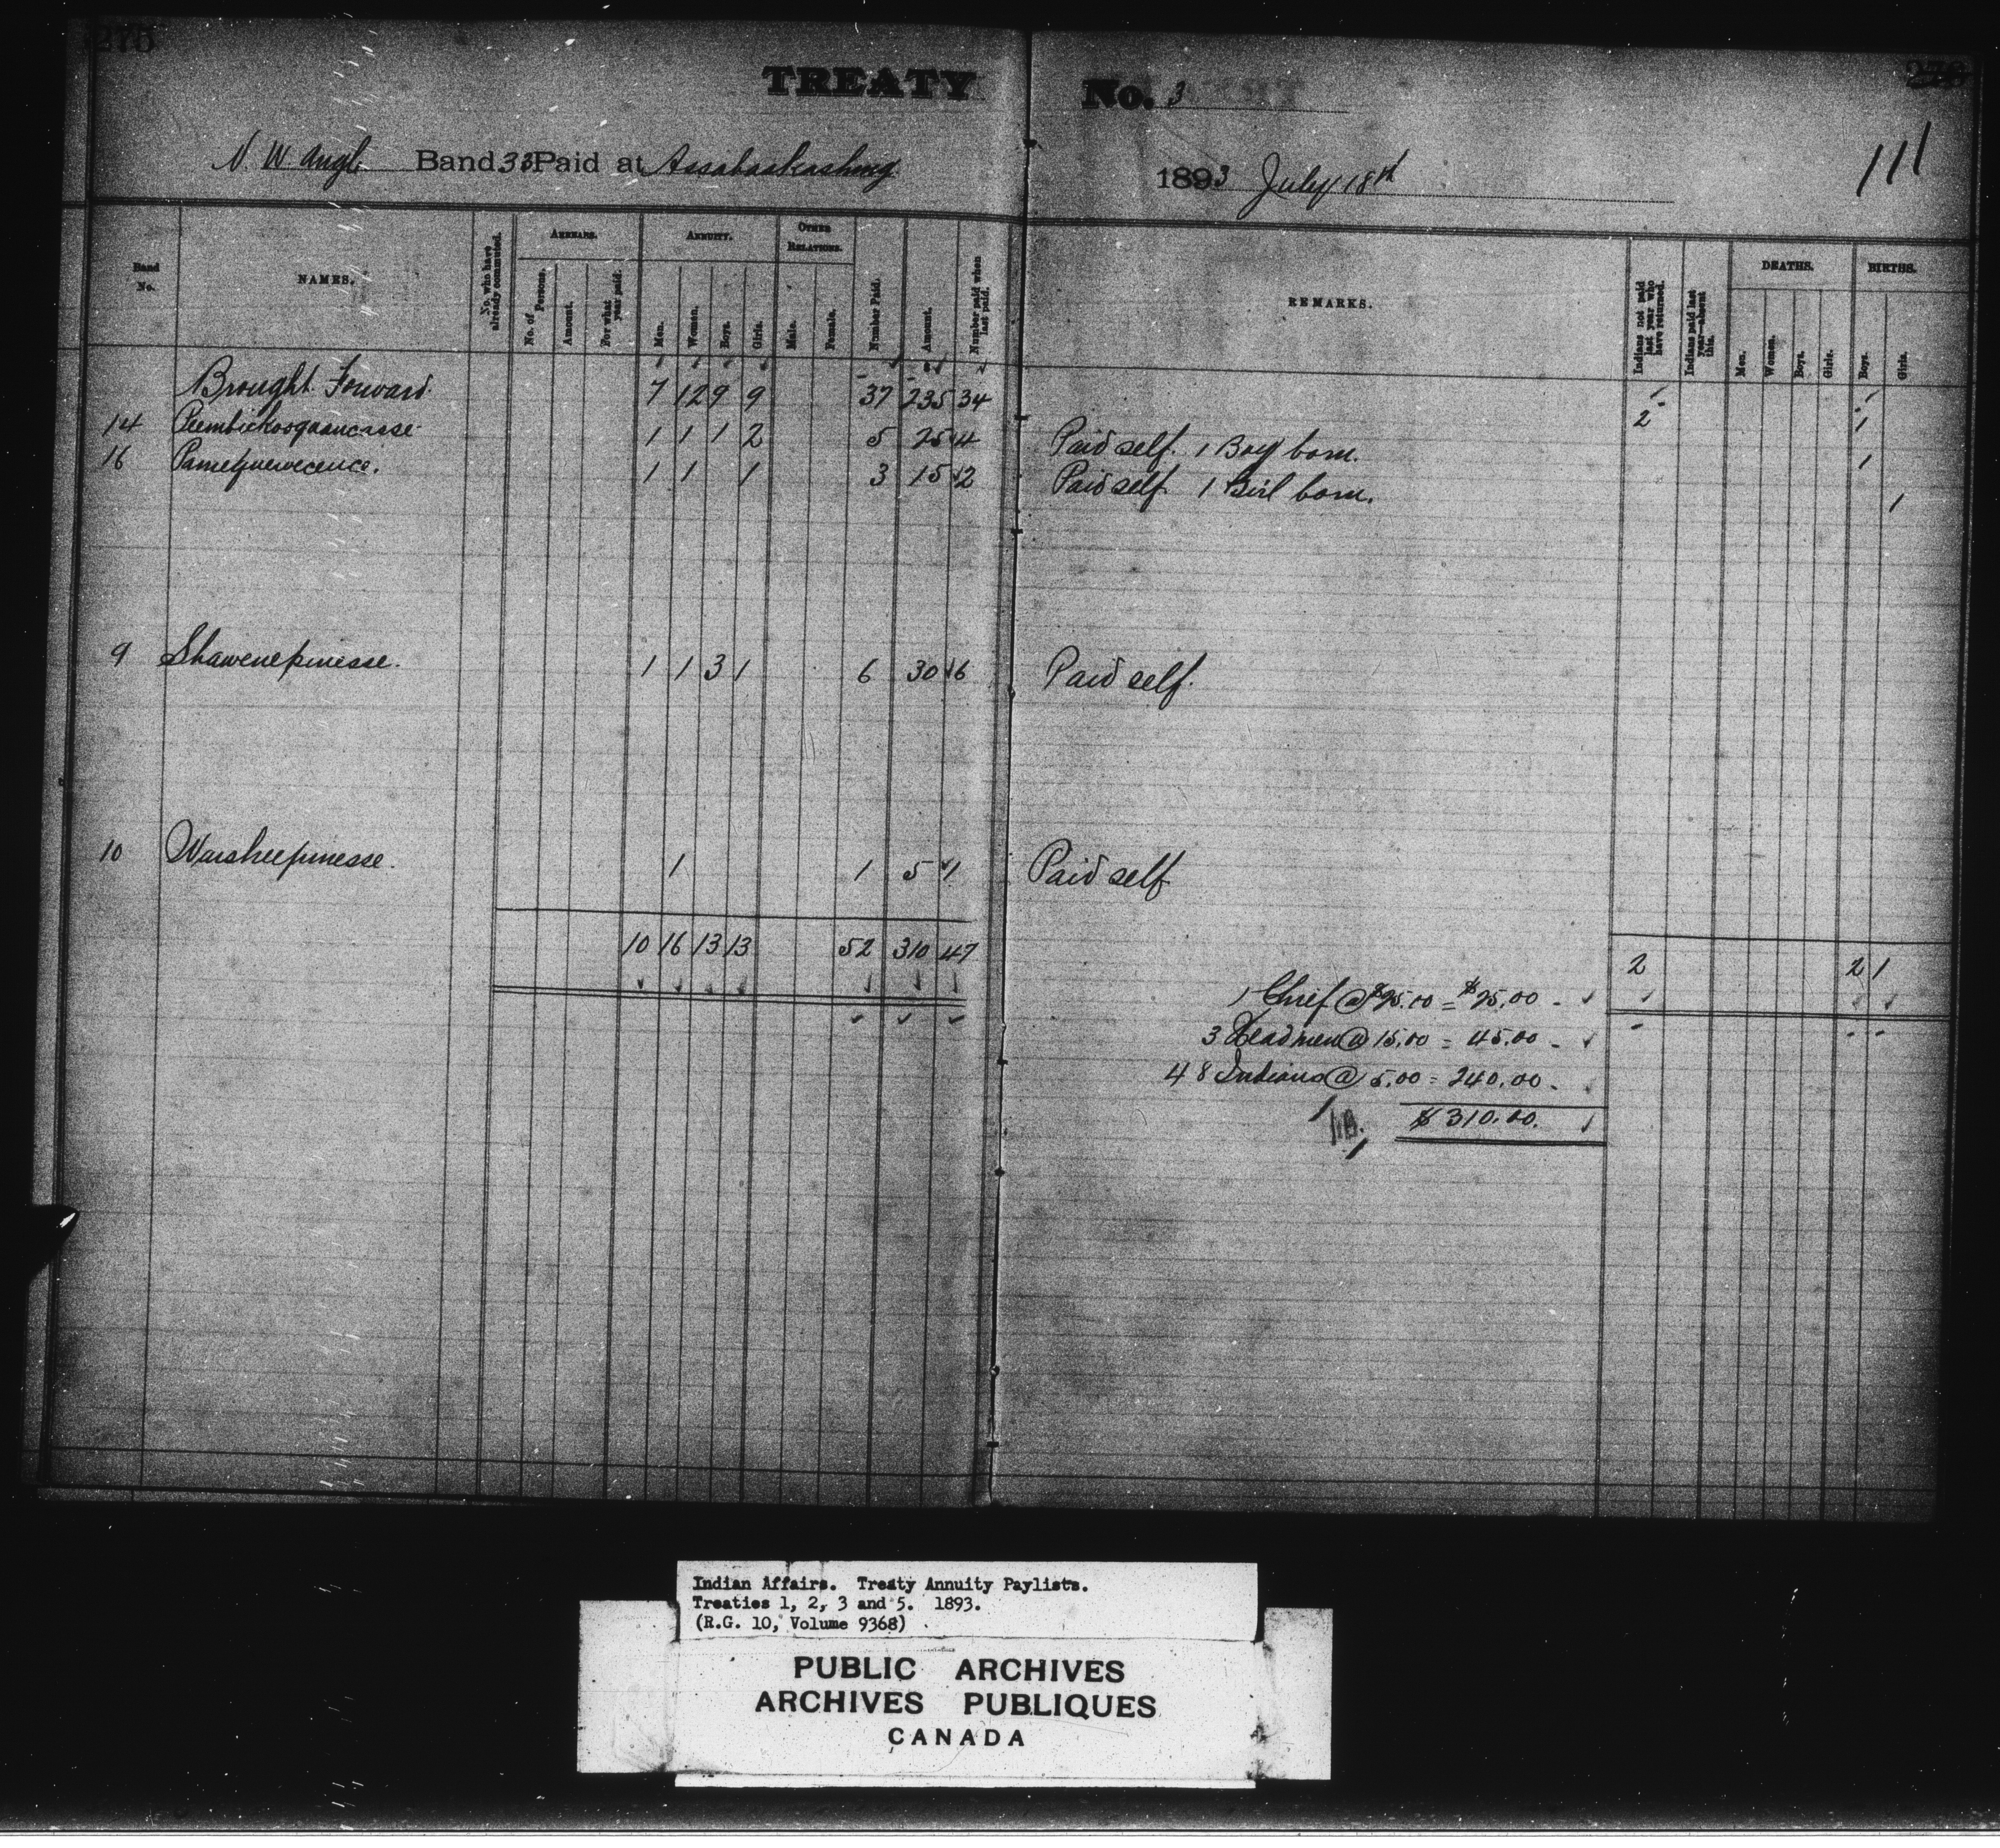 TREATY No. 3
N. W. Angle Band 33 Paid at Assabaskashing 1893 July 18th 111
Band No. NAMES. No. who have already commuted. ARREARS. No. of Persons. Amount. For what year paid. ANNUITY. Men. Women. Boys. Girls. OTHER RELATIONS. Male. Female. Number Paid. Amount. Number paid when last paid. REMARKS. Indians not paid last year who have returned. Indians paid last year—absent this. DEATHS. Men. Women. Boys. Girls. BIRTHS. Boys. Girls.
Brought Forward. 7 12 9 9 37 235 34 2 1
14 1 1 1 2 5 25 4 Paid self. 1 Boy born. 1
16 1 1 1 3 15 2 Paid self 1 Girl born. 1
9 Shawenepinesse. 1 1 3 1 6 30 6 Paid self.
10 Waisheepinesse. 1 1 5 1 Paid self
10 16 13 13 52 310 47 2 2 1
1 Chief @ $25.00 = $25.00
3 Headmen @ 15.00 = 45.00
48 Indians @ 5.00 = 240.00
$310.00.
Indian Affairs. Treaty Annuity Paylists.
Treaties 1, 2, 3 and 5. 1893.
(R.G. 10, Volume 9368)
PUBLIC ARCHIVES
ARCHIVES PUBLIQUES
CANADA